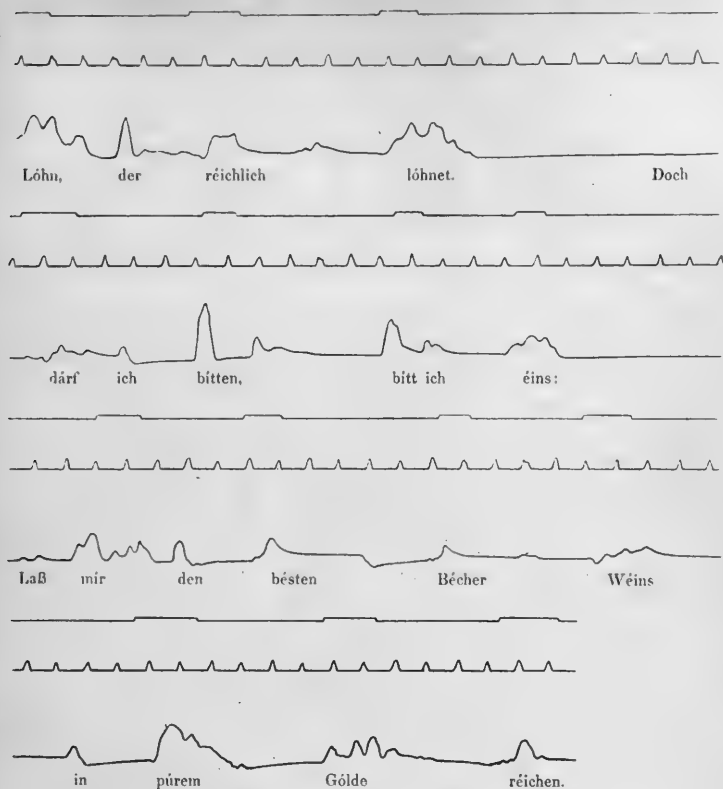 Lóhn, der réichlich lóhnet. Doch
dárf ich bítten, bítt ich éins:
Laß mír den bésten Bécher Wéins
in púrem Gólde réichen.